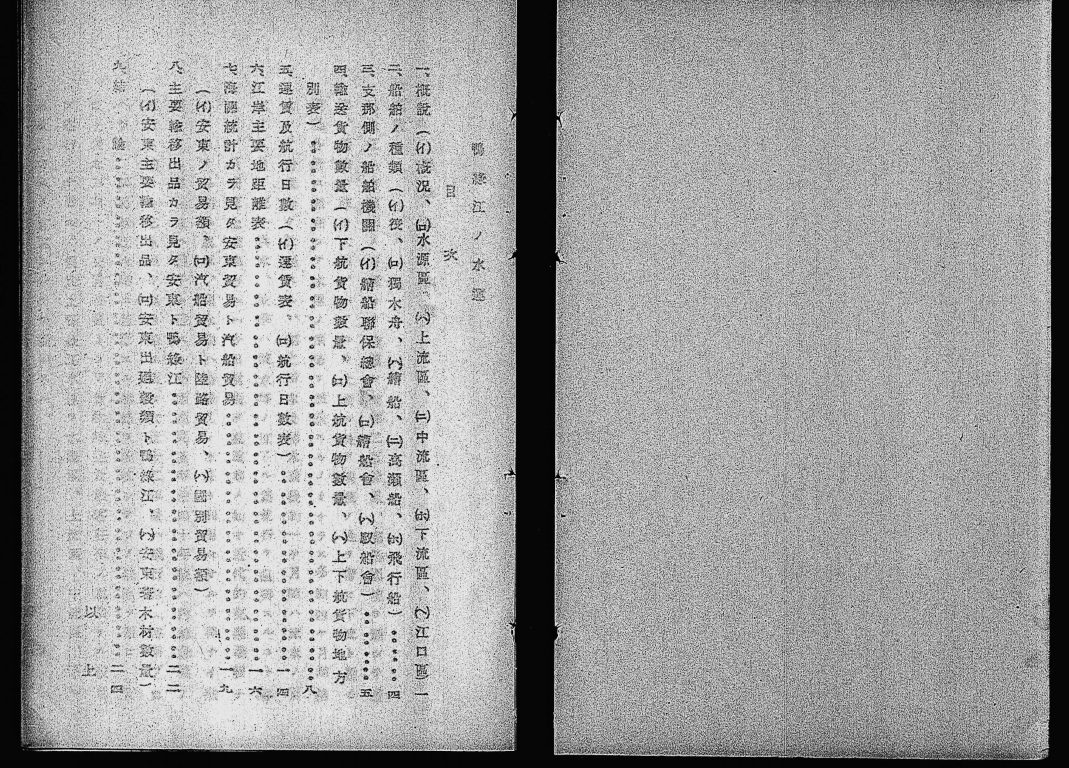 鴨綠江ノ水運
目次
一、概説(イ)概況、(ロ)水源區、(ハ)上流區、(ニ)中流區、(ホ)下流區、(ヘ)江口區)一
二、船舶ノ種類(イ)筏、(ロ)獨木舟、(ハ)艚船、(ニ)高瀬船、(ホ)飛行船)……四
三、支那側ノ船舶機關(イ)艚船聯保總會、(ロ)艚船會、(ハ)駁船會)……五
四、輸送貨物數量(イ)下航貨物數量、(ロ)上航貨物數量、(ハ)上下航貨物地方
別表)……八
五、運賃及航行日數(イ)運賃表、(ロ)航行日數表)……一四
六、江岸主要地距離表……一六
七、海關統計カラ見タ安東貿易ト汽船貿易……一九
(イ)安東ノ貿易額、(ロ)汽船貿易ト陸路貿易、(ハ)國別貿易額)
八、主要輸移出品カラ見タ安東ト鴨綠江……二二
(イ)安東主要輸移出品、(ロ)安東出廻穀類ト鴨綠江、(ハ)安東著木材數量)
九、結論……二四
以上